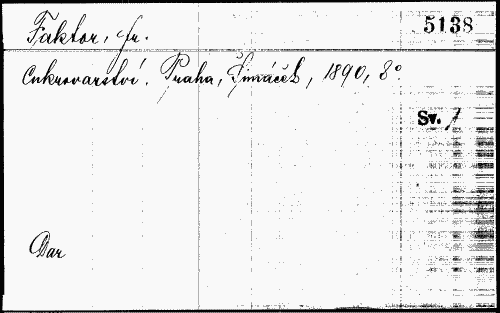 Faktor, Fr.
5138
Cukrovarství. Praha, Šimáček, 1890, 8°.
Sv. 1
Dar